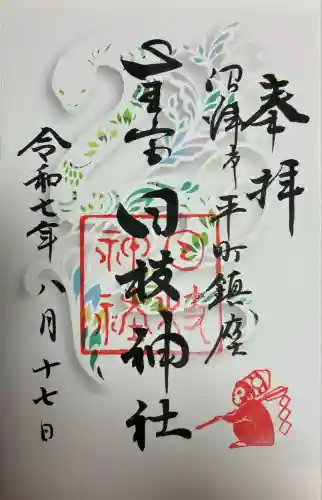 奉拝
沼津市平町鎮座
山王宮 日枝神社
令和七年八月十七日
日枝神社